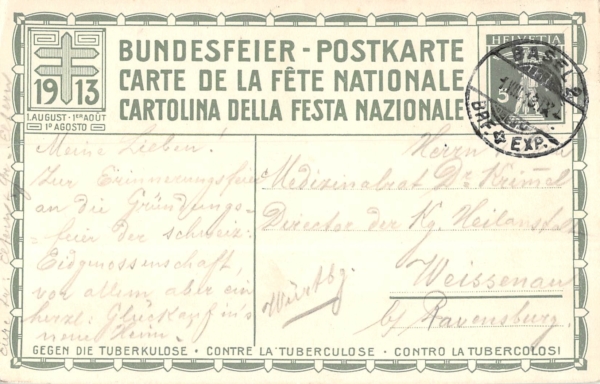 BUNDESFEIER - POSTKARTE
CARTE DE LA FÊTE NATIONALE
CARTOLINA DELLA FESTA NAZIONALE
1913
1.AUGUST · 1ER AOÛT
1º AGOSTO
HELVETIA
5
BASEL 2
BRF. EXP.
Meine Lieben!
Zur Erinnerungsfeier
an die Gründungs-
=feier der schweiz:
Eidgenossenschaft,
vor allem aber ein
herzl: Glückauf in's
neue Heim.
Herrn
Medizinalrat Dr Krimmel
Director der Kg. Heilanstalt
Weissenau
b/ Ravensburg.
Württbg.
GEGEN DIE TUBERKULOSE · CONTRE LA TUBERCULOSE · CONTRO LA TUBERCOLOSI